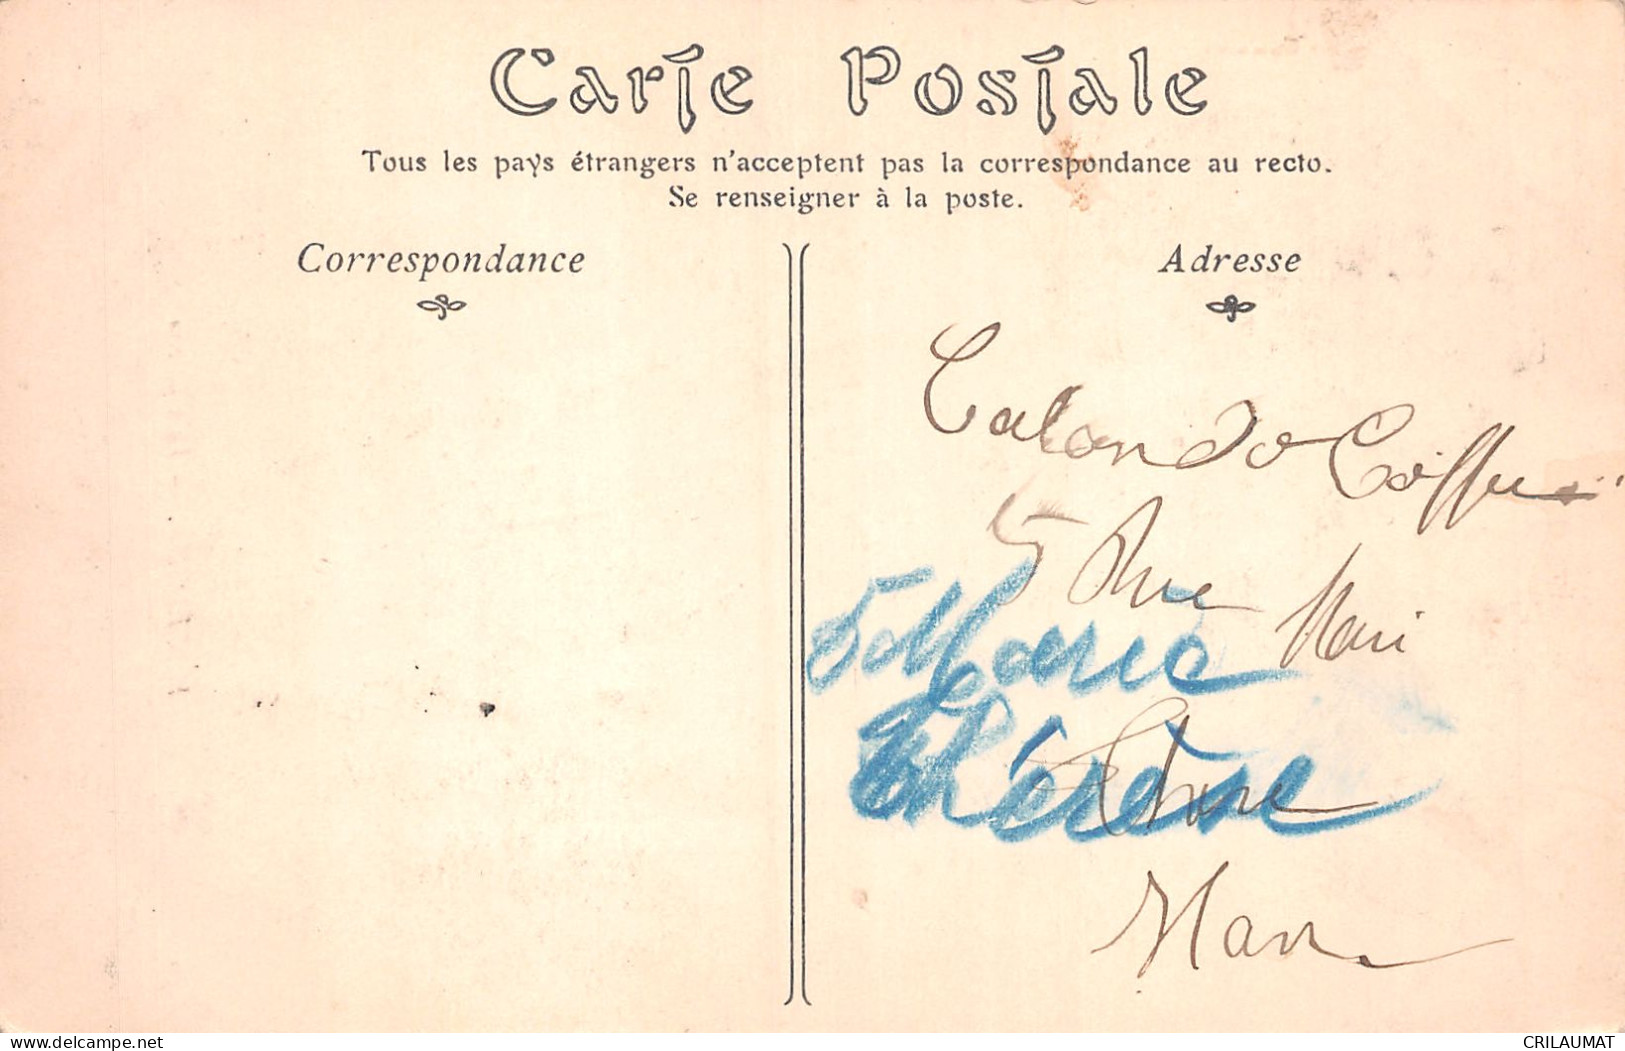 Carte Postale
Tous les pays étrangers n'acceptent pas la correspondance au recto.
Se renseigner à la poste.
Correspondance
Adresse
5 Rue Mari
5 Marie
Thérèse
delcampe.net
CRILAUMAT